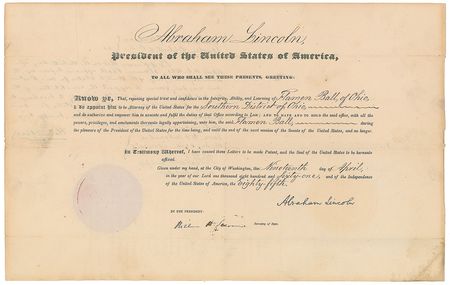 Abraham Lincoln,
President of the United States of America,
TO ALL WHO SHALL SEE THESE PRESENTS, GREETING:
Know ye, That, reposing special trust and confidence in the Integrity, Ability, and Learning of Flamen Ball, of Ohio,
I do appoint him to be Attorney of the United States for the Southern District of Ohio
and do authorize and empower him to execute and fulfil the duties of that Office according to Law; AND TO HAVE AND TO HOLD the said office, with all the
powers, privileges, and emoluments thereunto legally appertaining, unto him, the said Flamen Ball, during
the pleasure of the President of the United States for the time being, and until the end of the next session of the Senate of the United States, and no longer.
In Testimony Whereof, I have caused these Letters to be made Patent, and the Seal of the United States to be hereunto
affixed.
Given under my hand, at the City of Washington, the Nineteenth day of April,
in the year of our Lord one thousand eight hundred and sixty-one, and of the Independence
of the United States of America, the Eighty-fifth.
Abraham Lincoln
BY THE PRESIDENT:
Secretary of State.